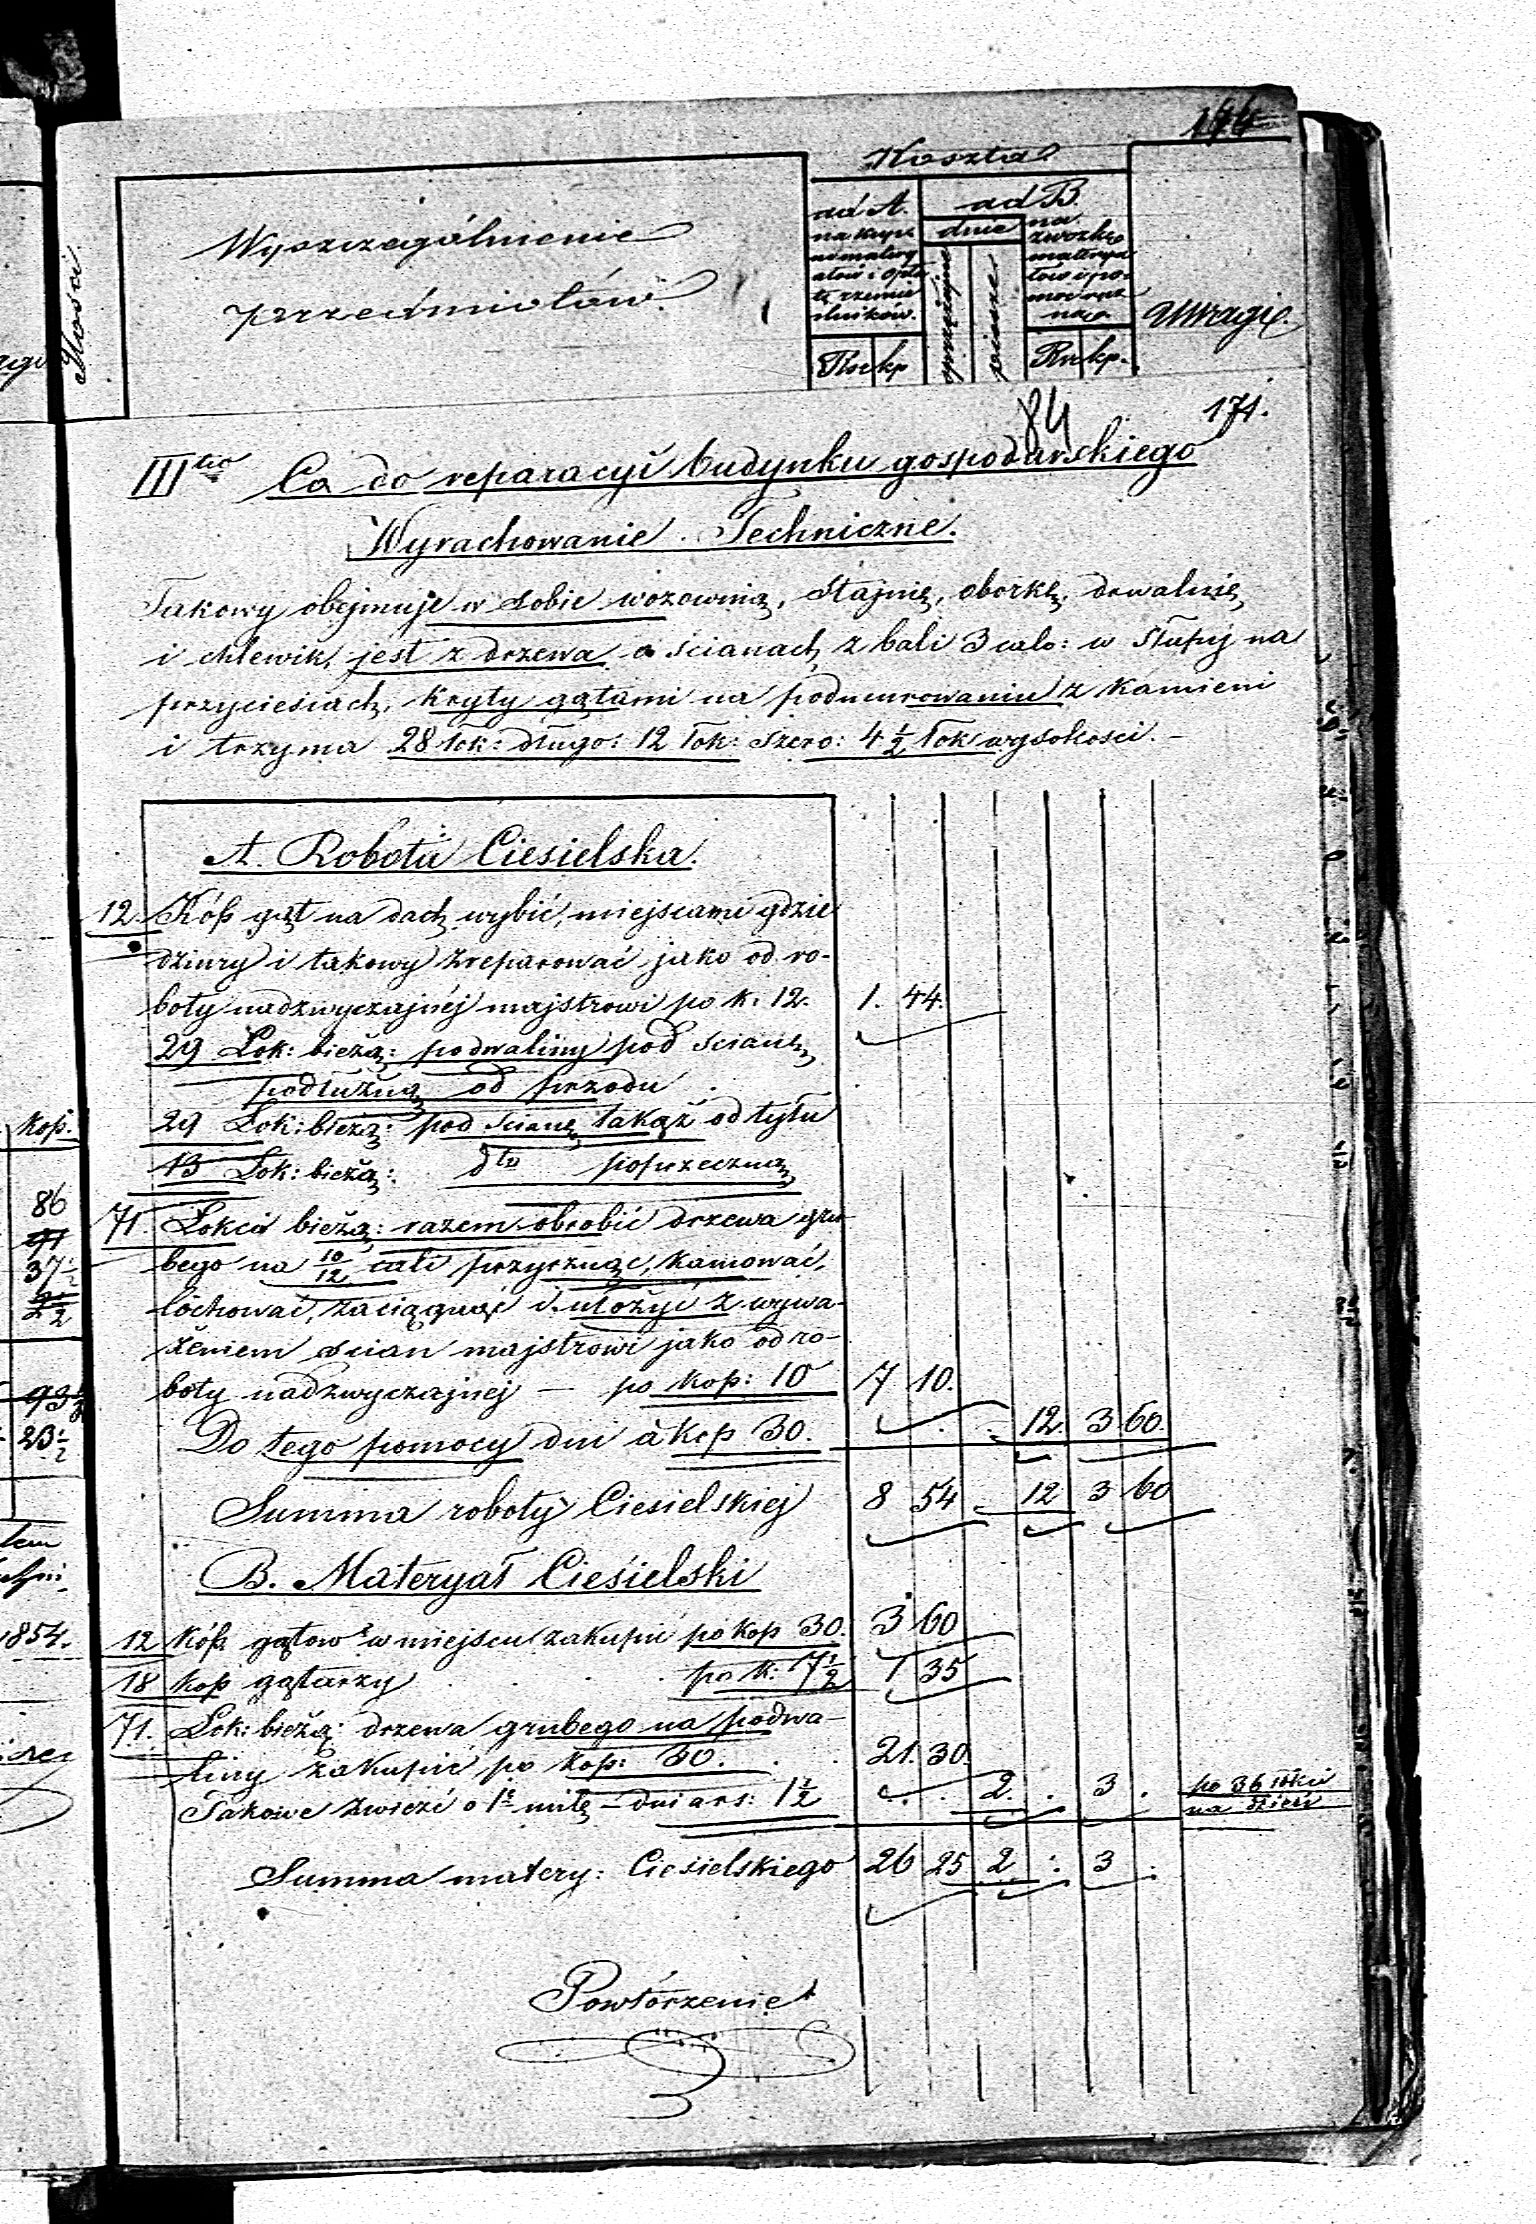 144
Koszta
Ilości
Wyszczególnienie
przedmiotów
ad A.
na kupno materyałów i opłatę rzemieślników.
Rsr kp
ad B.
dnie
sprzężajne
piesze
na zwózkę materyałów i pomoc ręczną
Rsr kp.
Uwagi.
84
171.
III tio Co do reparacyi budynku gospodarskiego
Wyrachowanie Techniczne.
Takowy obejmuje w sobie wozownią, stajnię, oborkę, drwalnię,
i chlewik, jest z drzewa o ścianach z bali 3 calo: w słupy na
przyciesiach, kryty gątami na podmurowaniu z kamieni
i trzyma 28 łok: długo: 12 łok: szero: 4 1/2 łok wysokości. –
A. Robota Ciesielska.
12. Kóp gąt na dach wybić, miejscami gdzie
dziury i takowy zreparować jako od ro-
boty nadzwyczajnéj majstrowi po k. 12. 1. 44.
29 Łok: bieżą: podwaliny pod ścianę
podłużną od przodu
29 Łok: bieżą: pod ścianę takąż od tyłu
13 Łok: bieżą: dto poprzeczną
71. Łokci bieżą: razem obrobić drzewa gru-
bego na 10/12 cali przyrznąć, kamować,
lochować, zaciągnąć i ułożyć z wywa-
żeniem ścian majstrowi jako od ro-
boty nadzwyczajnej – po kop: 10 7 10.
Do tego pomocy dni à kop 30. 12. 3 60.
Summa roboty Ciesielskiej 8 54 – 12 3 60
B. Materyał Ciesielski
12 Kóp gątow w miejscu zakupić po kop 30. 3 60
18 kop gątarzy po k: 7 1/2 1 35
71. Łok: bieżą: drzewa grubego na podwa-
liny zakupić po kop: 30. 21. 30.
Takowe zwieźć o 1 milę – dni ars: 1 1/2 . . 2. . 3 . po 36 łokci
na dzień
Summa matery: Ciesielskiego 26 25 2 : 3 .
Powtórzenie
kop.
86
91
37 1/2
93 1/2
23 1/2
1854.